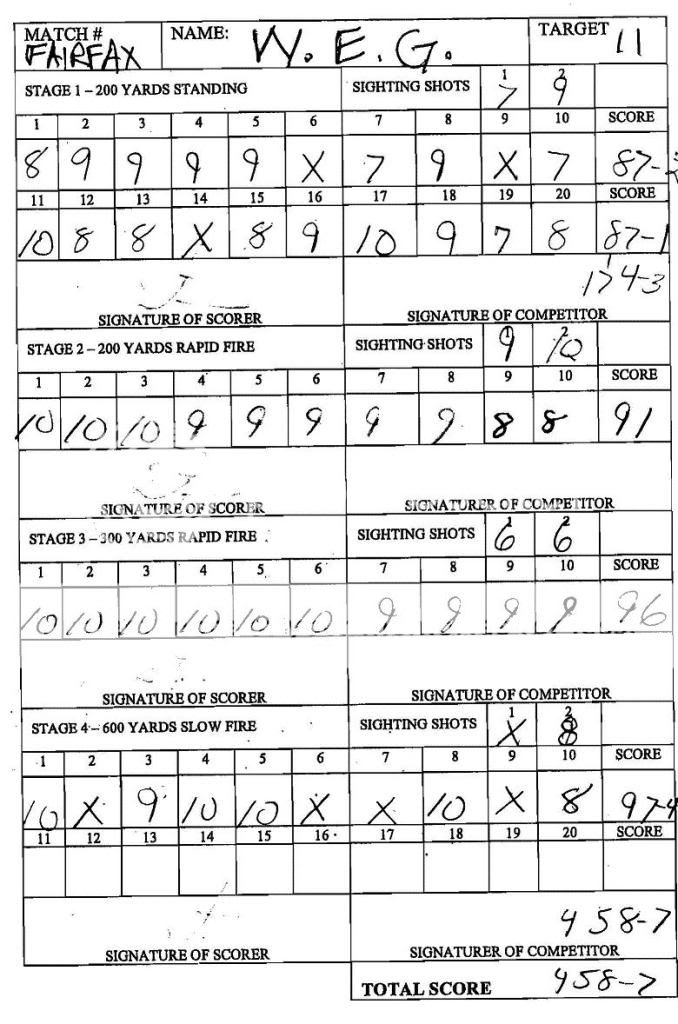 MATCH # NAME: W. E. G. TARGET 11
FAIRFAX
STAGE 1 – 200 YARDS STANDING SIGHTING SHOTS 1 2
7 9
1 2 3 4 5 6 7 8 9 10 SCORE
8 9 9 9 9 X 7 9 X 7 87-2
11 12 13 14 15 16 17 18 19 20 SCORE
10 8 8 X 8 9 10 9 7 8 87-1
174-3
SIGNATURE OF SCORER SIGNATURE OF COMPETITOR
STAGE 2 – 200 YARDS RAPID FIRE SIGHTING SHOTS 1 2
9 10
1 2 3 4 5 6 7 8 9 10 SCORE
10 10 10 9 9 9 9 9 8 8 91
SIGNATURE OF SCORER SIGNATURER OF COMPETITOR
STAGE 3 – 300 YARDS RAPID FIRE SIGHTING SHOTS 1 2
6 6
1 2 3 4 5 6 7 8 9 10 SCORE
10 10 10 10 10 10 9 9 9 9 96
SIGNATURE OF SCORER SIGNATURE OF COMPETITOR
STAGE 4 – 600 YARDS SLOW FIRE SIGHTING SHOTS 1 2
X 8
1 2 3 4 5 6 7 8 9 10 SCORE
10 X 9 10 10 X X 10 X 8 97-4
11 12 13 14 15 16 17 18 19 20 SCORE
458-7
SIGNATURE OF SCORER SIGNATURER OF COMPETITOR
TOTAL SCORE 458-7